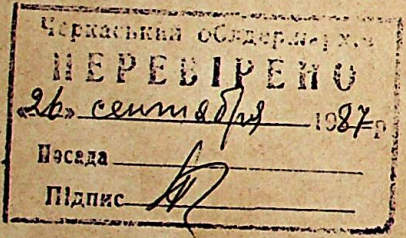 Черкаський облдержархів
ПЕРЕВІРЕНО
«26» сентября 1987 р
Посада
Підпис